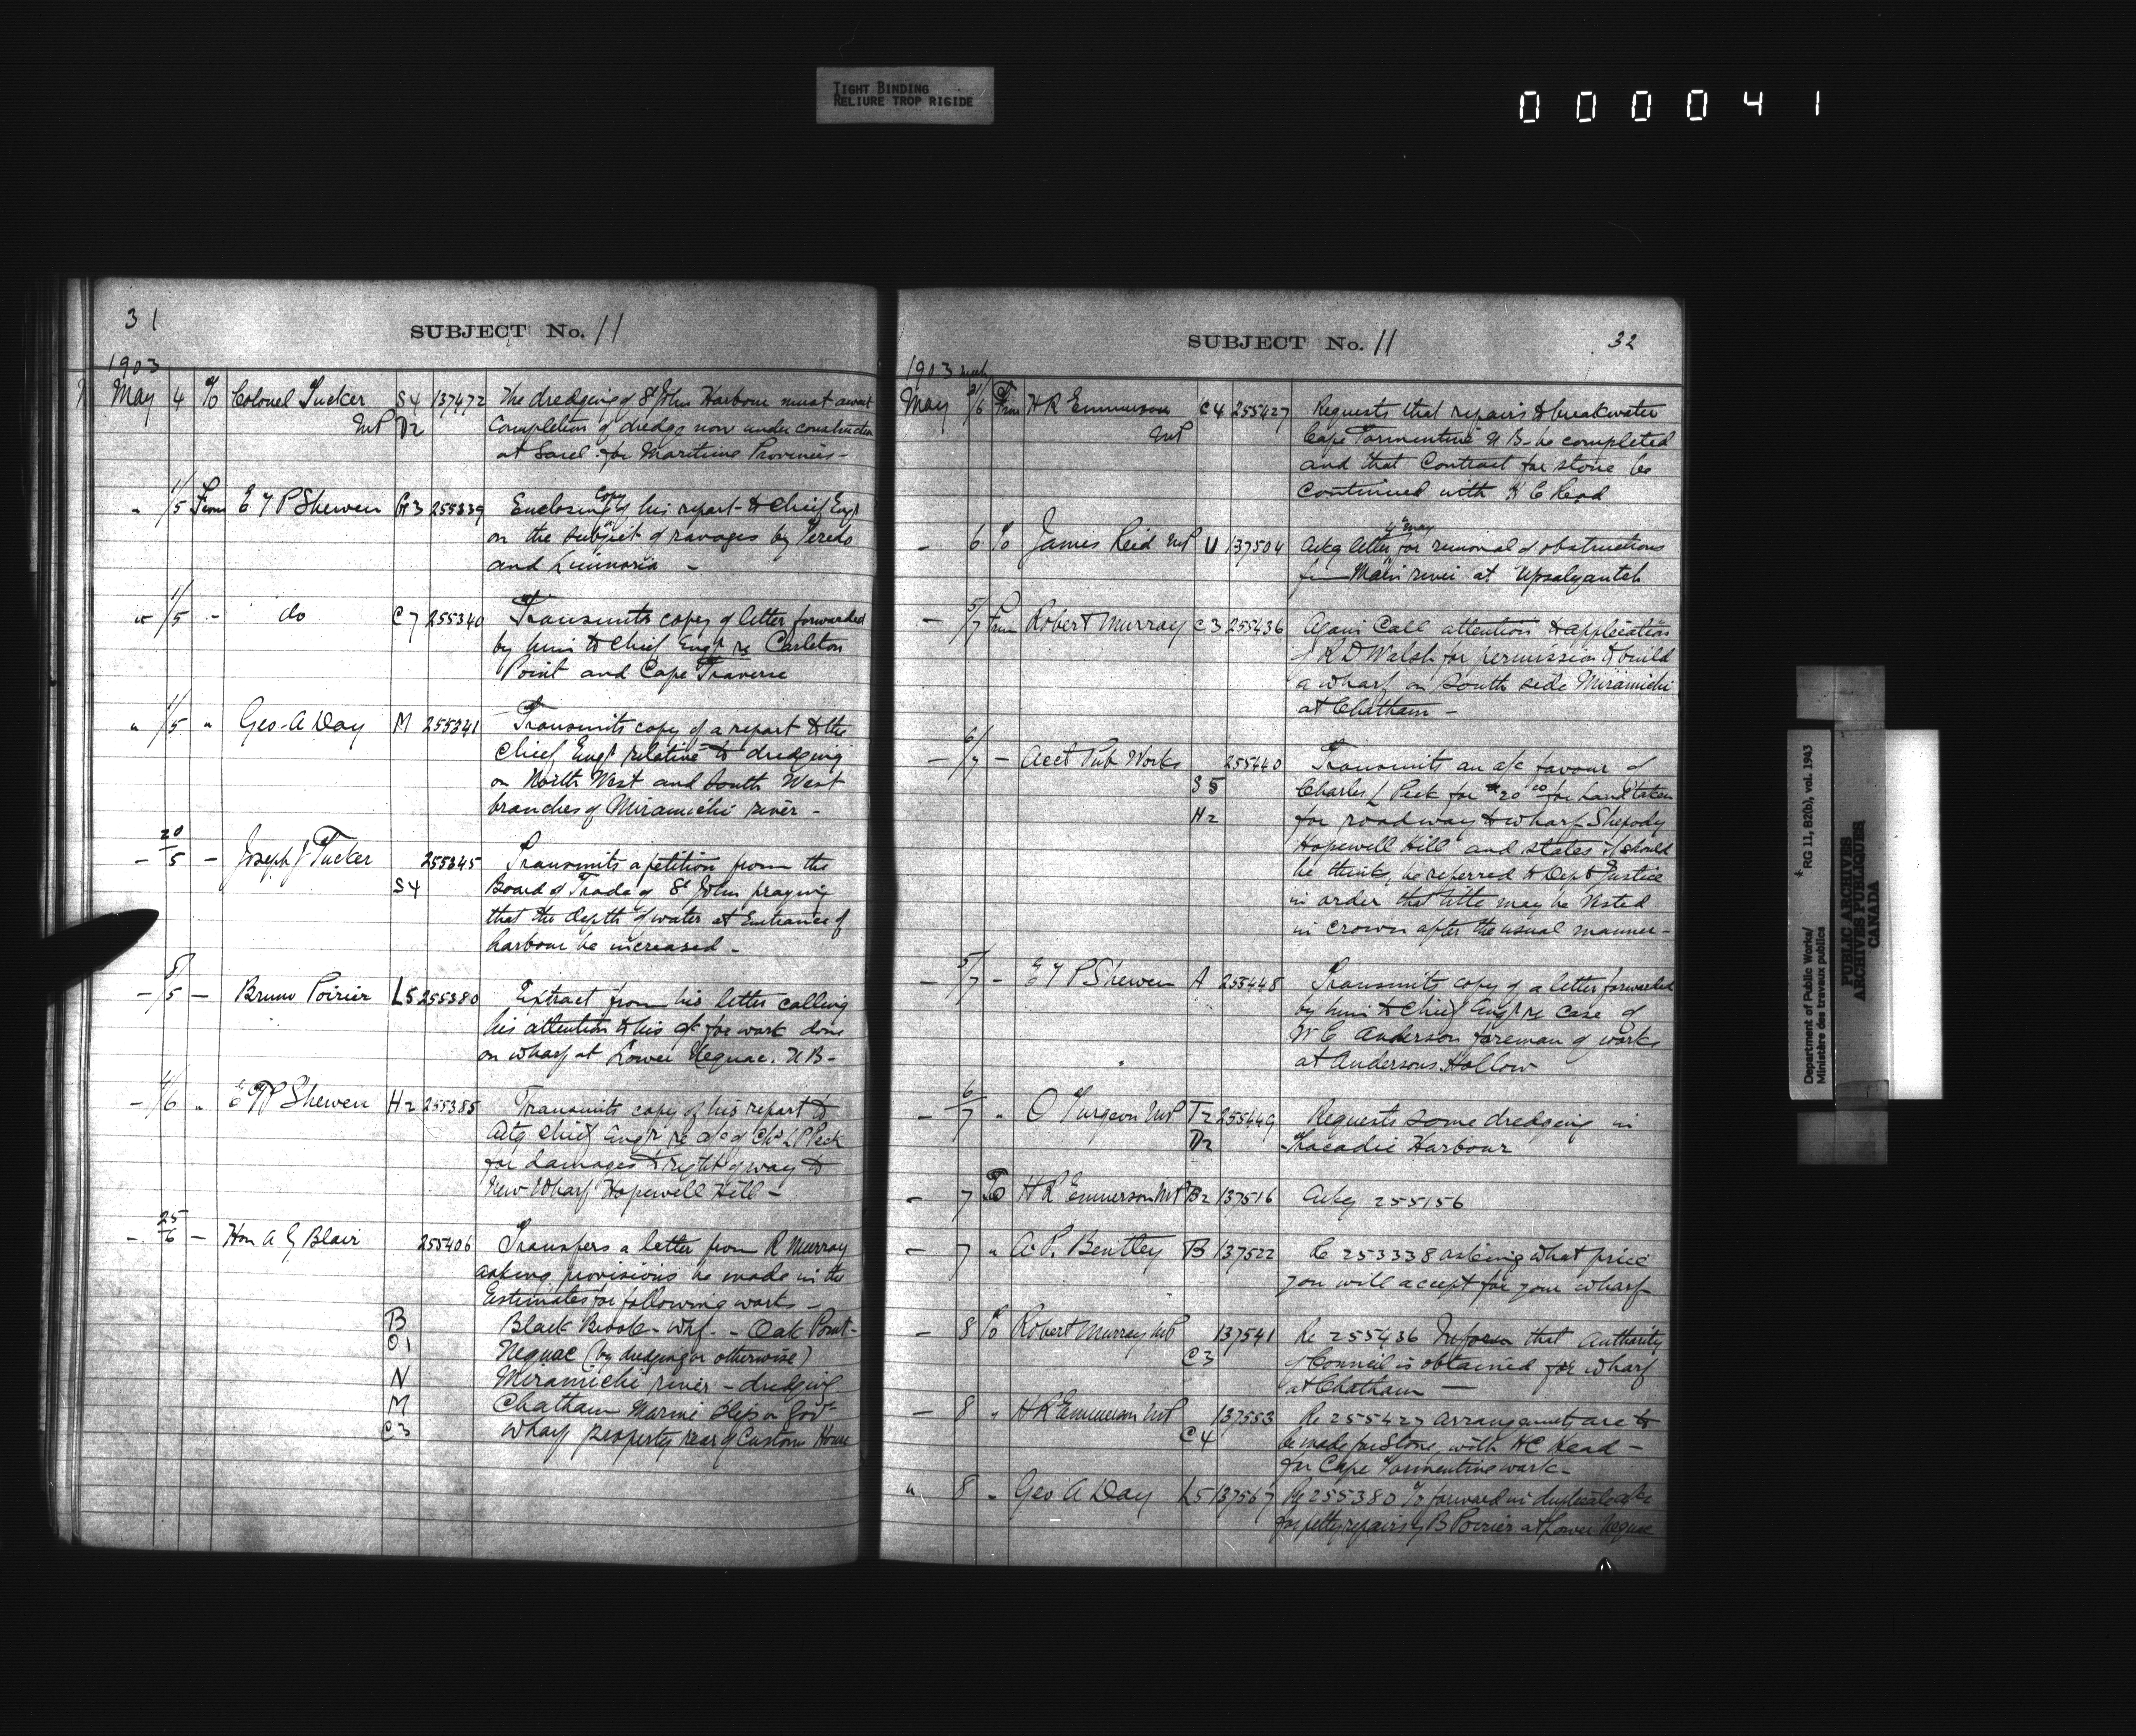 TIGHT BINDING
RELIURE TROP RIGIDE
000041
31
SUBJECT No. 11
1903
May 4 To Colonel Tucker S4 137472 The dredging of St John Harbour must await
MP D2 Completion of dredge now under construction
at Sorel for Maritime Provinces -
" 1/5 From E T P Shewen G3 255339 Enclosing copy of his report to Chief Engr
on the subject of ravages by Teredo
and Limnoria -
" 1/5 - do C7 255340 Transmits copy of letter forwarded
by him to Chief Engr re Carleton
Point and Cape Traverse
" 1/5 " Geo. A Day M 255341 Transmits copy of a report to the
Chief Engr relative to dredging
on North West and South West
branches of Miramichi river -
- 20/5 - Joseph J Tucker 255345 Transmits a petition from the
S4 Board of Trade of St John praying
that the depth of water at Entrance of
harbour be increased -
- 5/5 - Bruno Poirier L5 255380 Extract from his letter calling
his attention to his a/c for work done
on wharf at Lower Neguac. N B -
- 4/6 " E T P Shewen H2 255385 Transmits copy of his report to
Actg Chief Engr re a/c of Chs L Peck
for damages to right of way to
New Wharf Hopewell Hill -
- 25/6 - Hon A G Blair 255406 Transfers a letter from R Murray
asking provisions be made in the
Estimates for following works -
B Black Brook - whf. - Oak Point -
O1 Neguac (by dredging or otherwise)
N Miramichi river - dredging
M Chatham Marine Slip or Govt
C3 Wharf property rear of Custom House
SUBJECT No. 11
32
1903
May /6 From H R Emmerson C4 255427 Requests that repairs to breakwater
MP Cape Tormentine N B - be completed
and that Contract for stone be
continued with H C Read
- 6 To James Reid MP U 137504 Ackg letter 4th May for removal of obstructions
from Main river at Upsalquitch
- 5/7 From Robert Murray C3 255436 Again Call attention to application
of R D Walsh for permission to build
a wharf on South side Miramichi
at Chatham -
- 6/7 - Acct Pub Works 255440 Transmits an a/c favour of
S5 Charles L Peck for $20 00 for land taken
H2 for roadway to wharf Shepody
Hopewell Hill and states it should
he thinks, be referred to Dept Justice
in order that title may be Vested
in crown after the usual manner -
- 5/7 - E T P Shewen A 255448 Transmits copy of a letter forwarded
by him to Chief Engr re case of
W C Anderson foreman of works
at Andersons Hollow
- 6/7 " O Turgeon MP T2 255449 Requests some dredging in
D2 Tracadie Harbour
- 7 To H R Emmerson MP B2 137516 Ackg 255156
- 7 " A. P. Bentley B 137522 Re 253338 asking what price
you will accept for your wharf
- 8 To Robert Murray MP 137541 Re 255436 Inform that Authority
C3 of Council is obtained for wharf
at Chatham -
- 8 " H R Emmerson MP 137553 Re 255427 arrangements are to
C4 be made for Stone, with H C Read -
for Cape Tormentine work -
" 8 - Geo A Day L5 137567 Re 255380 To forward in duplicate a/c
for petty repairs by B Poirier at Lower Neguac
Department of Public Works/
Ministère des travaux publics
* RG 11, B2(b), vol. 1943
PUBLIC ARCHIVES
ARCHIVES PUBLIQUES
CANADA